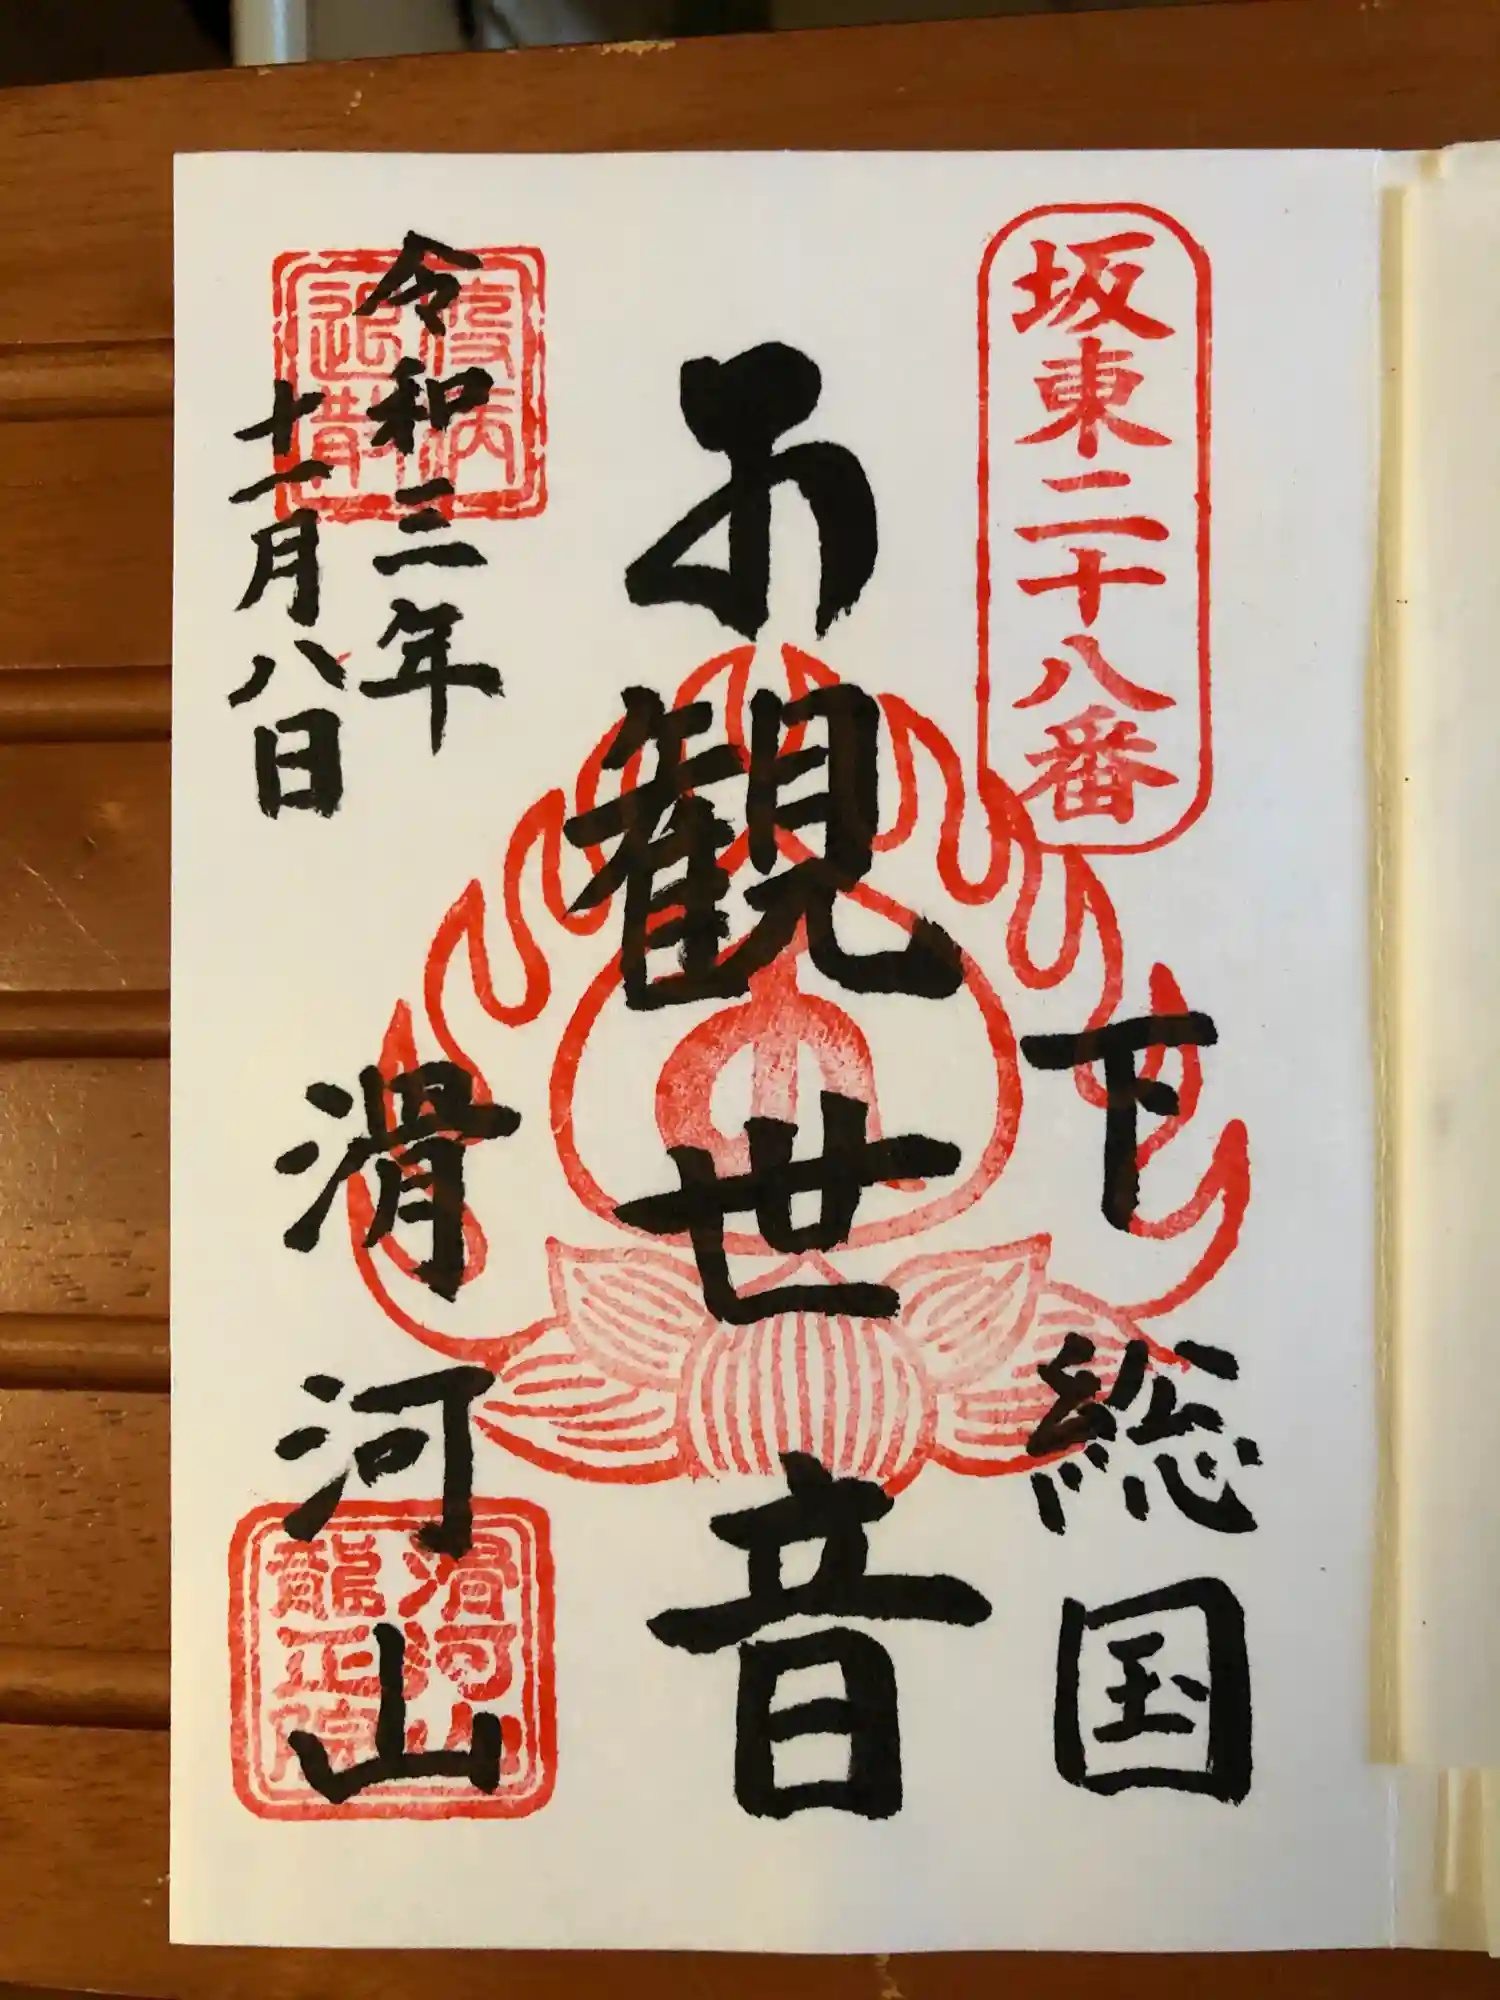 坂東二十八番
下総国
観世音
令和三年
十二月八日
疫病
退散
滑河山
滑河山
龍正院